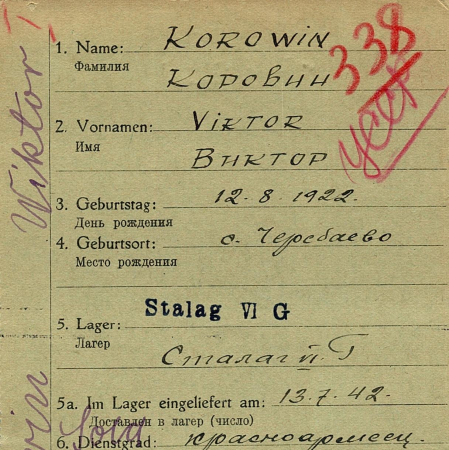 1. Name: KOROWIN
Фамилия
Коровин
338
2. Vornamen: VIKTOR
Имя
Виктор
3. Geburtstag: 12. 8. 1922.
День рождения
4. Geburtsort: с. Черебаево
Место рождения
Stalag VI G
5. Lager:
Лагер
Сталаг
5a. Im Lager eingeliefert am: 13. 7. 42.
Доставлен в лагер (число)
6. Dienstgrad: красноармеец.
Wiktor